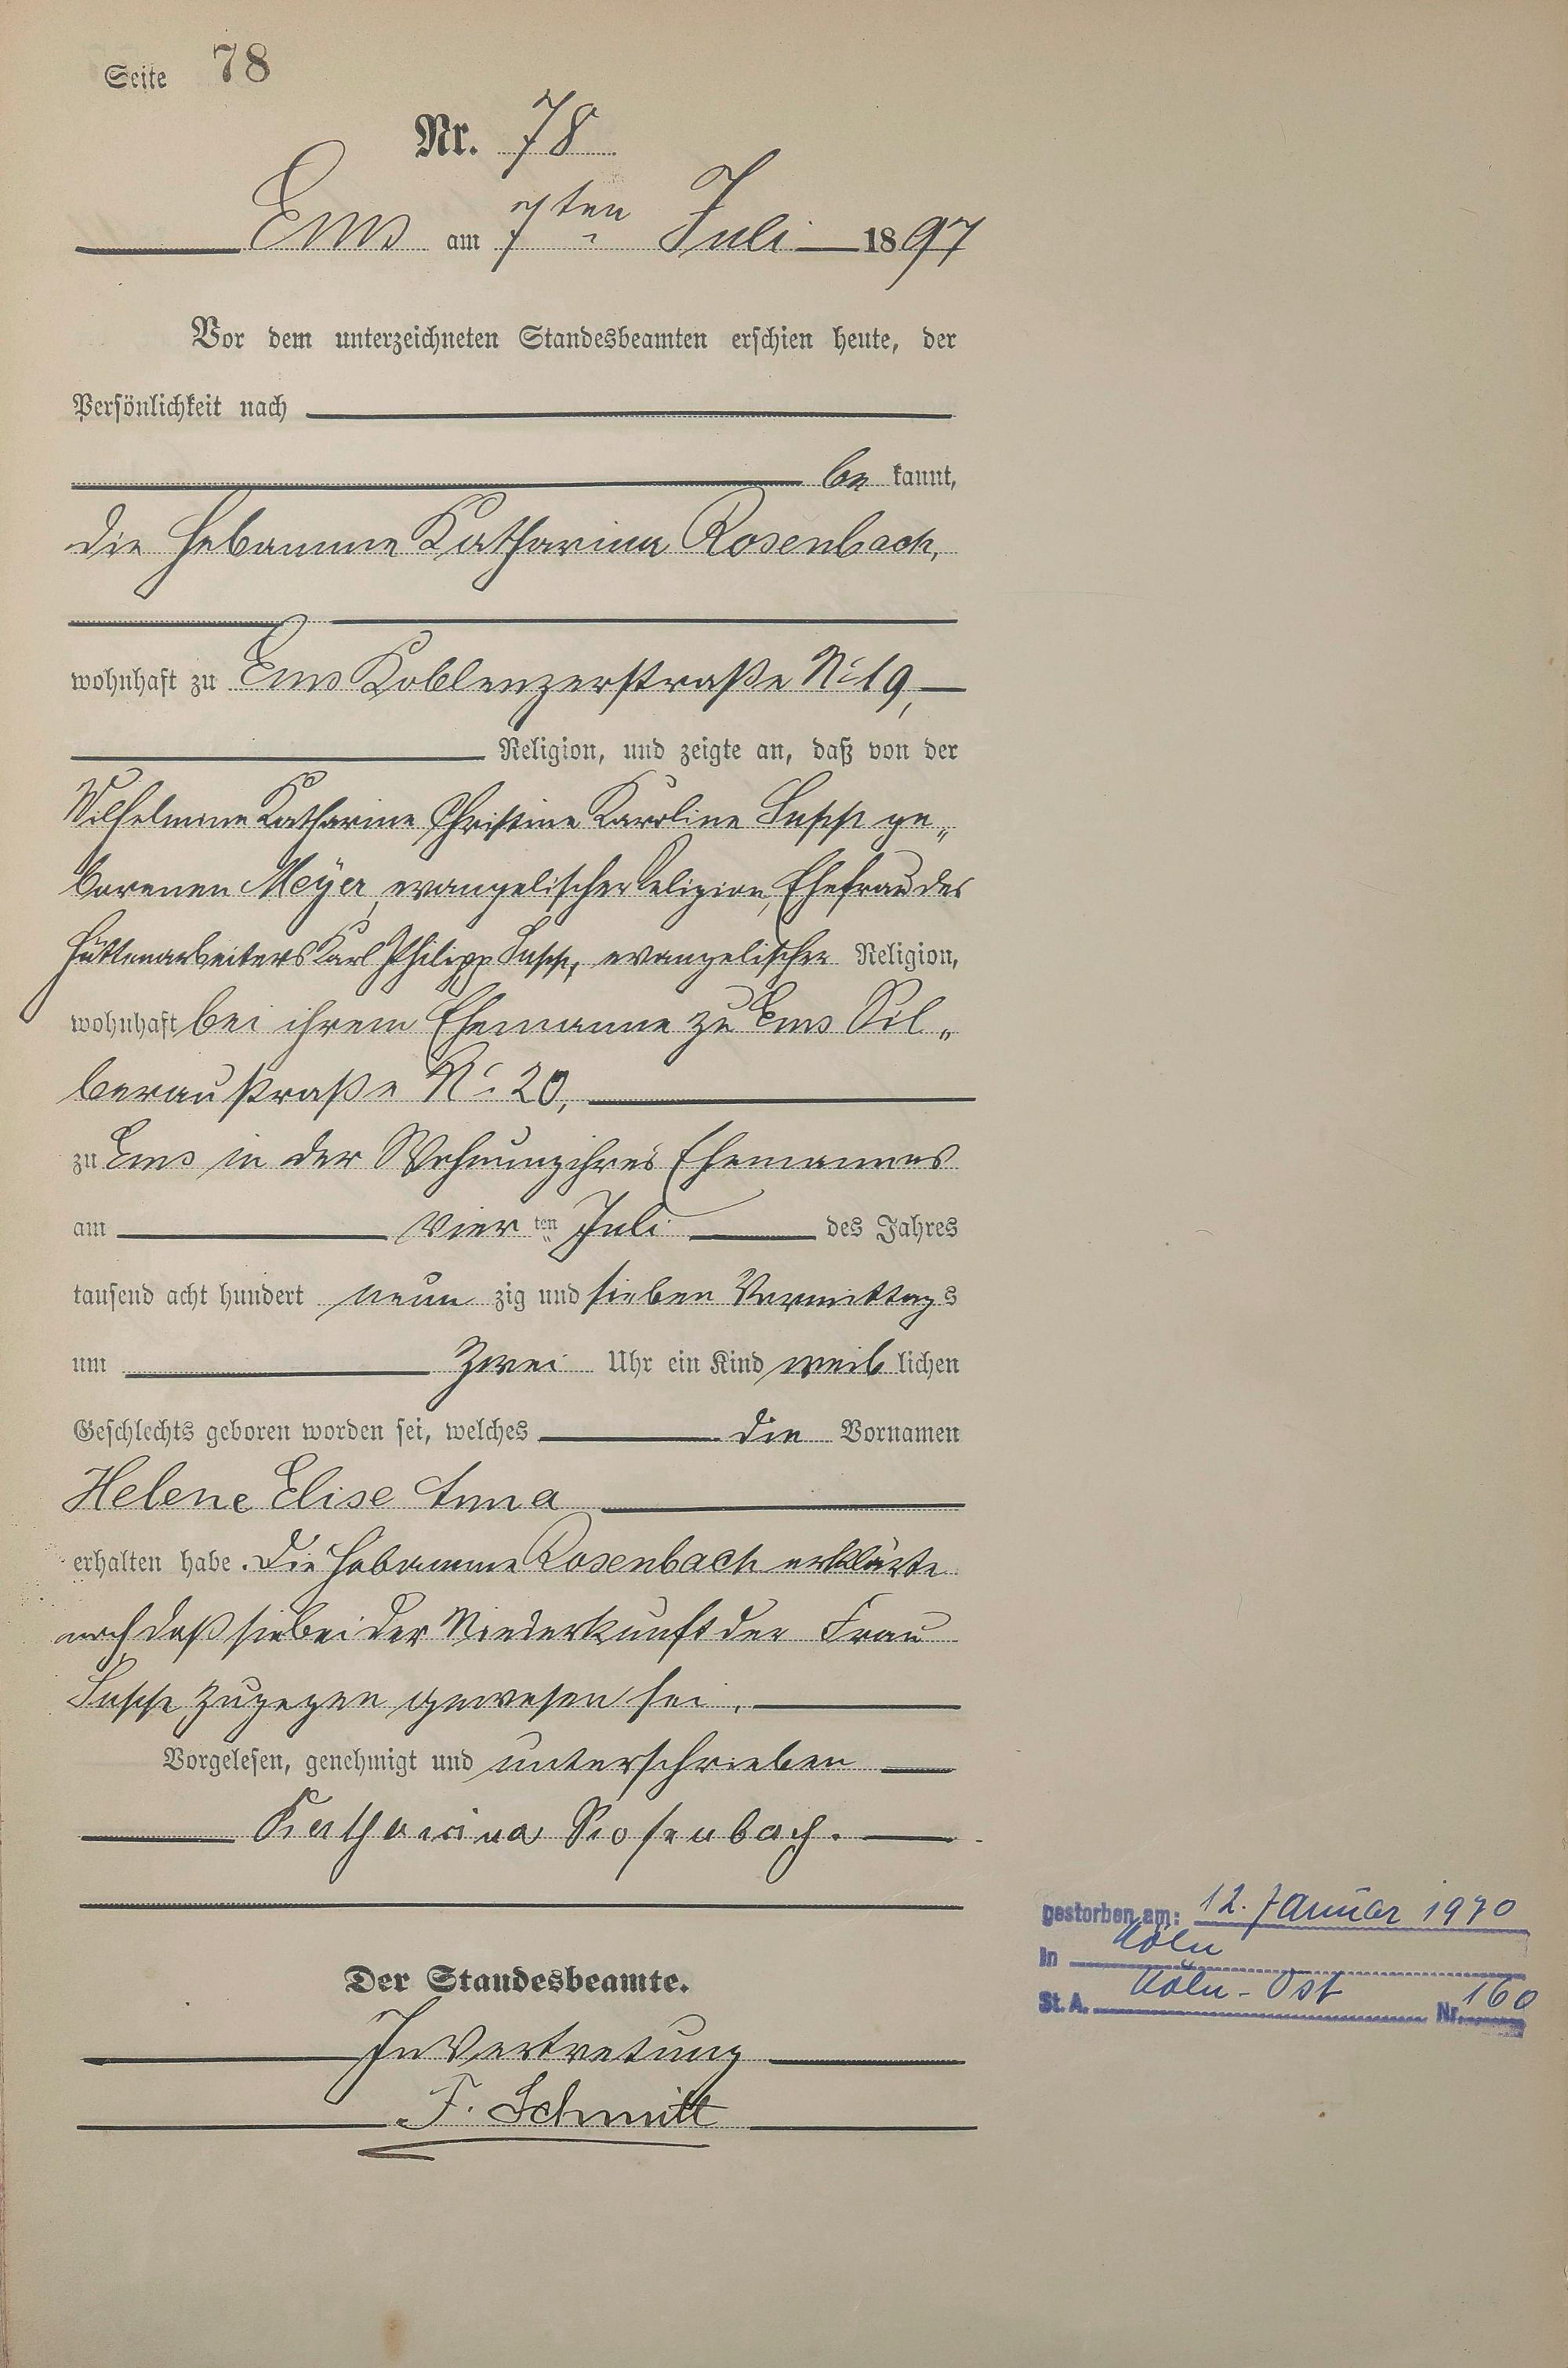 Seite 78
Nr. 78
Ems am 7ten Juli 1897
Vor dem unterzeichneten Standesbeamten erschien heute, der
Persönlichkeit nach
be kannt,
die Hebamme Katharina Rosenbach,
wohnhaft zu Ems Koblenzerstraße No 19,
Religion, und zeigte an, daß von der
Wilhelmine Katharine Christine Karoline ge„
borenen Meÿer, evangelischer Religion, Ehefrau des
Hüttenarbeiters Karl Philipp evangelischer Religion,
wohnhaft bei ihrem Ehemanne zu Ems Sil„
beraustraße No 20,
zu Ems in der Wohnung ihres Ehemannes
am vier ten Juli des Jahres
tausend acht hundert neun zig und sieben Vormittags
um zwei Uhr ein Kind weib lichen
Geschlechts geboren worden sei, welches die Vornamen
Helene Elise Anna
erhalten habe. Die Hebamme Rosenbach erklärte
noch daß sie bei der Niederkunft der Frau
zugegen gewesen sei.
Vorgelesen, genehmigt und unterschrieben
Katharina Rosenbach.
Der Standesbeamte.
In Vertretung
F. Schmitt
gestorben am: 12. Januar 1970
in Köln
St. A. Köln-Ost Nr. 160